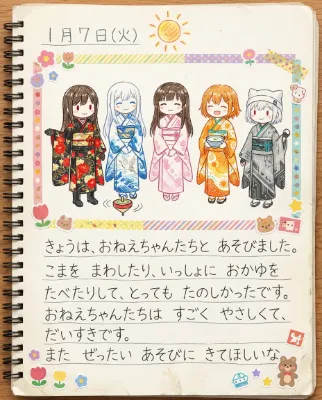 1月7日(火)
きょうは、おねえちゃんたちと あそびました。
こまを まわしたり、いっしょに おかゆを
たべたりして、とっても たのしかったです。
おねえちゃんたちは すごく やさしくて、
だいすきです。
また ぜったい あそびに きてほしいな